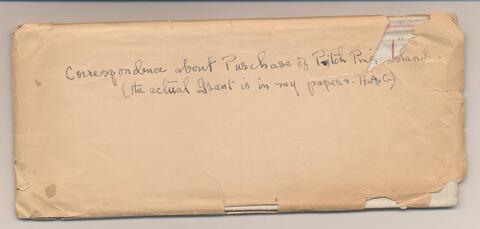 Correspondence about Purchase of Pitch Pine Island
(the actual Grant is in my papers. H.A.C.)